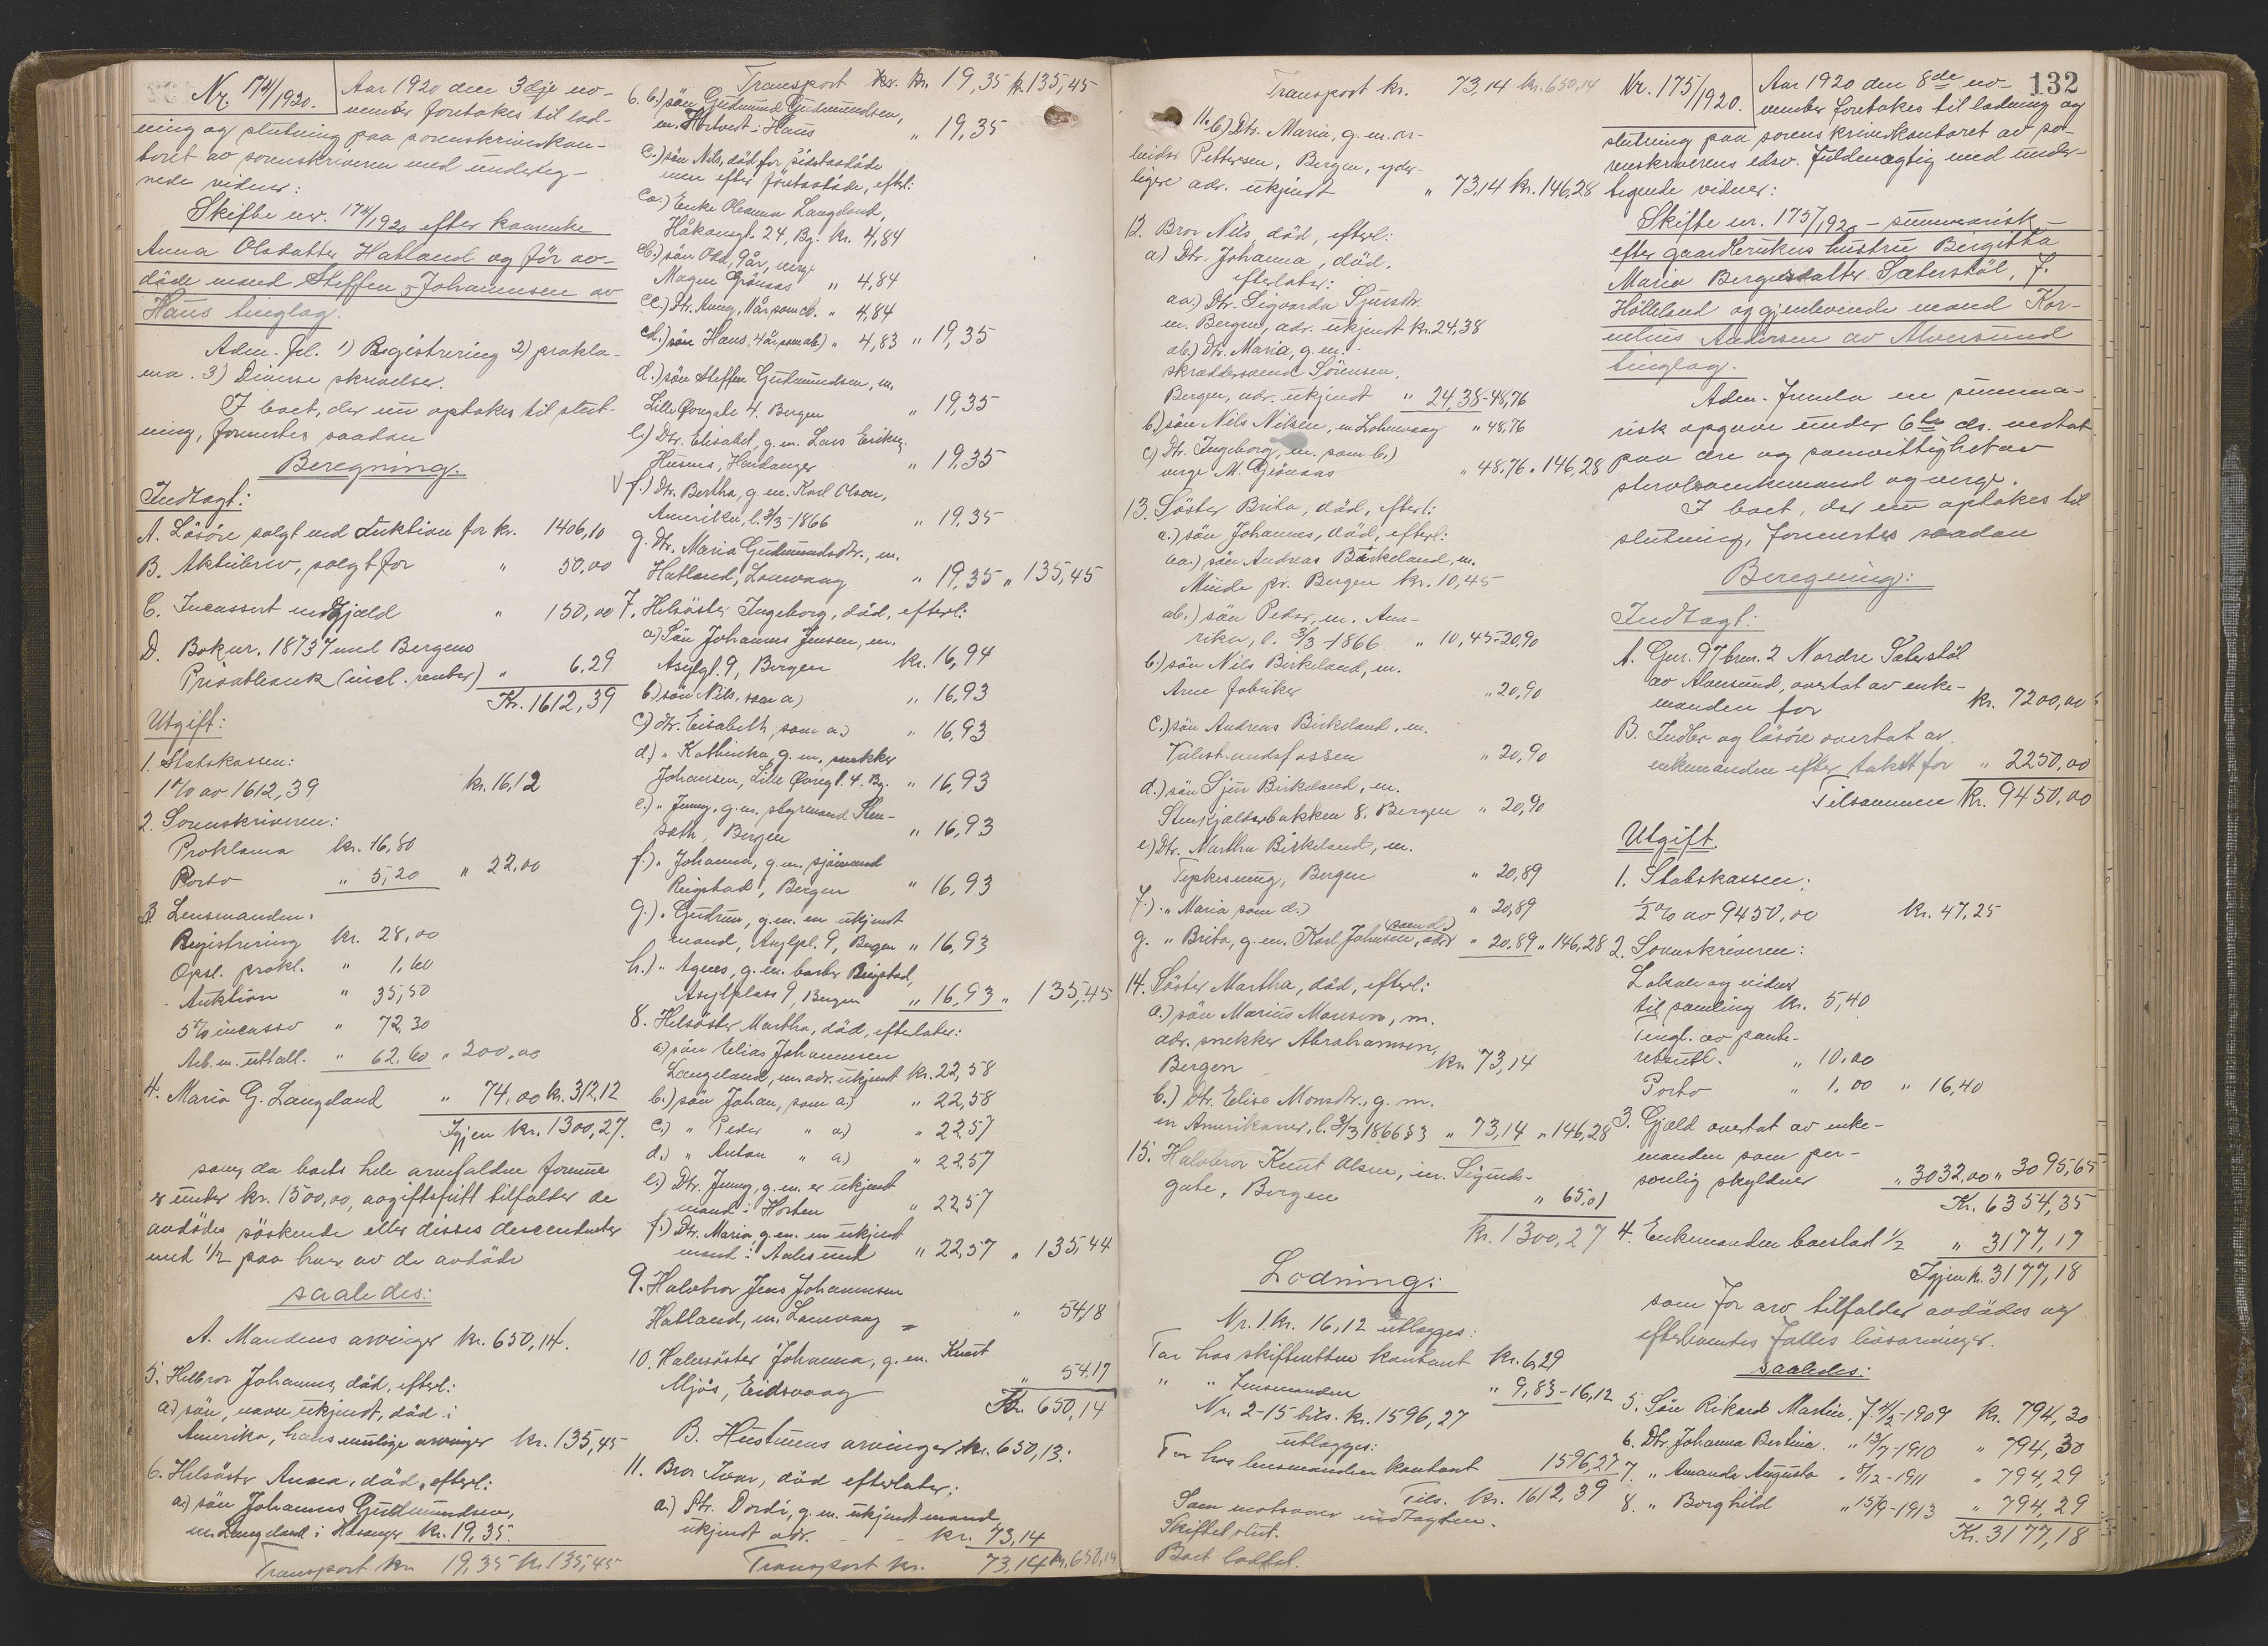 Nr. 174/1920.
Aar 1920 den 3dje no-
vember foretokes til lod-
ning og slutning paa sorenskriverkon-
toret av sorenskriveren med underteg-
nede vidner:
Skifte nr. 174/1920 efter kaarenke
Anna Olsdatter Hatland og før av-
døde mand Steffen Johannesen av
Haus tinglag.
Adm. fol. 1) Registrering 2) prokla-
ma. 3) Diverse skrivelser.
I boet, der nu optokes til slut-
ning, forventes saadan
Beregning.
Indtægt:
A. Løsøre solgt ved auktion for kr. 1406,10
B. Aktiebrev, solgt for " 50,00
C. Incassert utestgjæld " 150,00
D. Bok nr. 18737 med Bergens
Privatbank (incl. renter) " 6,29
Kr. 1612,39
Utgift:
1. Statskassen:
1 % av 1612,39 kr. 16,12
2. Sorenskriveren:
Proklama kr. 16,80
Porto " 5,20 " 22,00
3. Lensmanden:
Registrering kr. 28,00
Opsl. prokl. " 1,60
Auktion " 35,50
5 % incasso " 72,30
Arb. m. uttall. " 62,60 " 200,00
4. Maria G. Langeland " 74,00 kr. 312,12
Igjen kr. 1300,27.
som, da boets hele arvefaldne formue
er under kr. 1500,00, avgiftsfrit tilfalder de
avdødes søskende eller disses descendenter
med 1/2 paa hver av de avdøde
saaledes:
A. Mandens arvinger kr. 650,14.
5. Helbror Johannes, død, efterl:
a) søn, navn ukjendt, død i
Amerika, hans mulige arvinger kr. 135,45
6. Helsøster Anna, død, efterl:
a) søn Johannes Gudmundsen,
m. Langeland i Hosanger kr. 19,35.
Transport kr. 19,35 kr. 135,45
Transport kr. kr. 19,35 kr. 135,45
6. b) søn Gudmund Gudmundsen,
m. Hortvedt i Haus " 19,35
c.) søn Nils, død før sidstavdøde
men efter førstavdøde, efterl:
ca.) Enke Oleanna Langeland,
Håkonsgt. 24, Bg. kr. 4,84
cb.) søn Odd, 9 år, verge
Magne Grønaas " 4,84
cc.) Dtr. Anny, 11 år, som cb. " 4,84
cd.) søn Hans, 4 år, som cb) " 4,83 " 19,35
d.) søn Steffen Gudmundsen, m.
Lille Øvregate 4. Bergen " 19,35
e.) Dtr. Elisabet, g. m. Lars Eriksen,
Husnes, Hardanger " 19,35
f.) Dtr. Bertha, g. m. Karl Olsen,
Amerika, l. 3/3-1866 " 19,35
g. Dtr. Maria Gudmundsdtr., m.
Hatland, Lonevaag " 19,35 " 135,45
7. Helsøster Ingeborg, død, efterl:
a) Søn Johannes Jensen, m.
Asylpl. 9, Bergen kr. 16,94
b) søn Nils, som a) " 16,93
c) dtr. Elisabeth, som a.) " 16,93
d) " Kathinka, g. m. snekker
Johansen, Lille Øvregt. 4. Bg. " 16,93
e.) " Jenny, g. m. styrmand Sten-
seth, Bergen " 16,93
f.) " Johanna, g. m. sjømand
Ringstad, Bergen " 16,93
g.) " Gudrun, g. m. en ukjendt
mand, Asylpl. 9, Bergen " 16,93
h.) " Agnes, g. m. barber Ringstad,
Asylplass 9, Bergen " 16,93 " 135,45
8. Helsøster Martha, død, efterlater:
a) søn Elias Johannesen
Langeland, m. adr. ukjent kr. 22,58
b.) søn Johan, som a.) " 22,58
c.) " Peder " a) " 22,57
d.) " Anton " a.) " 22,57
e.) Dtr. Jenny, g. m. er ukjendt
mand i Horten " 22,57
f.) Dtr. Maria, g. m. en ukjendt
mand i Aalesund " 22,57 " 135,44
9. Halvbror Jens Johannesen
Hatland, m. Lonevaag = " 54,18
10. Halvsøster Johanna, g. m. Knut
Mjøs, Eidsvaag " 54,17
Kr. 650,14
B. Hustruens arvinger kr. 650,13:
11. Bror Ivar, død efterlater:
a.) Dtr. Dordi, g. m. ukjendt mand,
ukjendt adr. kr. 73,14
Transport kr. 73,14 kr. 650,14
Transport kr. 73,14 kr. 650,14
11. b) Dtr. Maria, g. m. ar-
beider Pettersen, Bergen, yder-
ligere adr. ukjendt " 73,14 kr. 146,28
12. Bror Nils, død, efterl:
a) Dtr. Johanna, død,
efterlater:
aa.) Dtr. Sigvarda Sjursdtr.
m. Bergen, adr. ukjendt kr. 24,38
ab.) Dtr. Maria, g. m.
skræddersvend Sørensen,
Bergen, adr. ukjendt " 24,38-48,76
b.) søn Nils Nilsen, m. Lonevaag " 48,76
c) Dtr. Ingeborg, m. som b.)
verge M. Grønaas " 48,76 " 146,28
13. Søster Brita, død, efterl:
a.) søn Johannes, død, efterl:
aa.) søn Andreas Birkeland, m.
Minde pr. Bergen kr. 10,45
ab.) søn Peder, m. Ame-
rika, l. 3/3-1866 " 10,45-20,90
b.) søn Nils Birkeland, m.
Arne fabriker " 20,90
c.) søn Andreas Birkeland, m.
" 20,90
d.) søn Sjur Birkeland, m.
Stenkjælderbakken 8. Bergen " 20,90
e) Dtr. Martha Birkeland, m.
Bergen " 20,89
f.) " Maria som d.) " 20,89
g. " Brita, g. m. Karl Johnsen, adr. som d.) " 20,89 " 146,28
14. Søster Martha, død, efterl:
a.) søn Marius Monsen, m.
adr. snekker Abrahamsen,
Bergen kr. 73,14
b.) Dtr. Elise Monsdtr., g. m.
en Amerikaner, l. 3/3 1866 § 3 " 73,14 " 146,28
15. Halvbror Knut Olsen, m. Sigurds-
gate, Bergen " 65,01
kr. 1300,27
Lodning:
Nr. 1. kr. 16,12 utlægges:
Tar hos skifteretten kontant kr. 6,29
" " Lensmanden " 9,83-16,12
Nr. 2-15 bils. kr. 1596,27
utlægges:
Tar hos lensmanden kontant 1596,27
Tils. kr. 1612,39
Som motsvarer indtægten.
Skiftet slut.
Boet loddet.
132
Nr. 175/1920.
Aar 1920 den 8de no-
vember foretokes til lodning og
slutning paa sorenskriverkontoret av so-
renskriverens edsv. fuldmægtig med under-
tegnede vidner:
Skifte nr. 175/1920 - summarisk -
efter gaardbrukers hustru Bergitta
Maria Bergesdatter Sæterstøl, f.
Hølleland og gjenlevende mand Kor-
nelius Andersen av Alversund
tinglag.
Adm. fremla en summa-
risk opgave under 6te ds. vedtat
paa ære og samvittighet av
stervboenkemand og verge.
I boet, der nu optokes til
slutning, forventes saadan
Beregning:
Indtægt:
A. Gnr. 97 brnr. 2 Nordre Sæterstøl
av Alversund, overtat av enke-
manden for kr. 7200,00
B. Indbo og løsøre overtat av
enkemanden efter takst for " 2250,00
Tilsammen kr. 9450,00
Utgift.
1. Statskassen:
1/2 % av 9450,00 kr. 47,25
2. Sorenskriveren:
Lokale og vidner
til samling kr. 5,40
Tingl. av pante-
" 10,00
Porto " 1,00 " 16,40
3. Gjæld overtat av enke-
manden som per-
sonlig skyldner " 3032,00 " 3095,65
Kr. 6354,35
4. Enkemanden boeslod 1/2 " 3177,17
Igjen kr. 3177,18
som for arv tilfalder avdødes og
efterlevendes fælles livsarvinger.
saaledes:
5. Søn Rikard Martin, f. 4/2-1909 kr. 794,30
6. Dtr. Johanna Bertina. " 13/7-1910 " 794,30
7. " Amanda Augusta " 4/12-1911 " 794,29
8. " Borghild " 15/9-1913 " 794,29
Kr. 3177,18